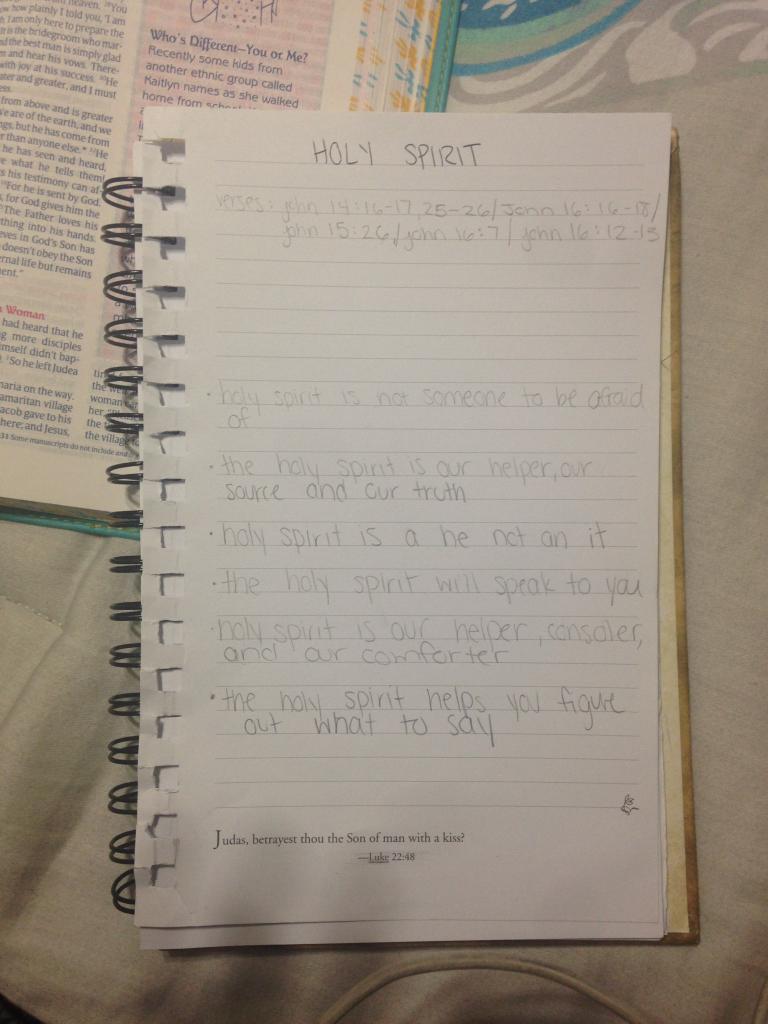 heaven. ²⁸You
how plainly I told you, 'I am
I am only here to prepare the
It is the bridegroom who mar-
and the best man is simply glad
and hear his vows. There-
with joy at his success. ³⁰He
greater and greater, and I must
from above and is greater
We are of the earth, and we
but he has come from
than anyone else.* ³²He
he has seen and heard,
what he tells them!
his testimony can af-
³⁴For he is sent by God.
for God gives him the
³⁵The Father loves his
thing into his hands.
in God's Son has
doesn't obey the Son
eternal life but remains
Woman
had heard that he
more disciples
himself didn't bap-
³So he left Judea
on the way.
Samaritan village
Jacob gave to his
here; and Jesus,
31 Some manuscripts do not include and
the village
Who's Different—You or Me?
Recently some kids from
another ethnic group called
Kaitlyn names as she walked
home from school
HOLY SPIRIT
verses: john 14:16-17, 25-26/ John 16:16-18/
john 15:26/ john 16:7/ john 16:12-13
· holy spirit is not someone to be afraid
of
· the holy spirit is our helper, our
source and our truth
· holy spirit is a he not an it
· the holy spirit will speak to you
· holy spirit is our helper, consoler,
and our comforter
· the holy spirit helps you figure
out what to say
Judas, betrayest thou the Son of man with a kiss?
—Luke 22:48